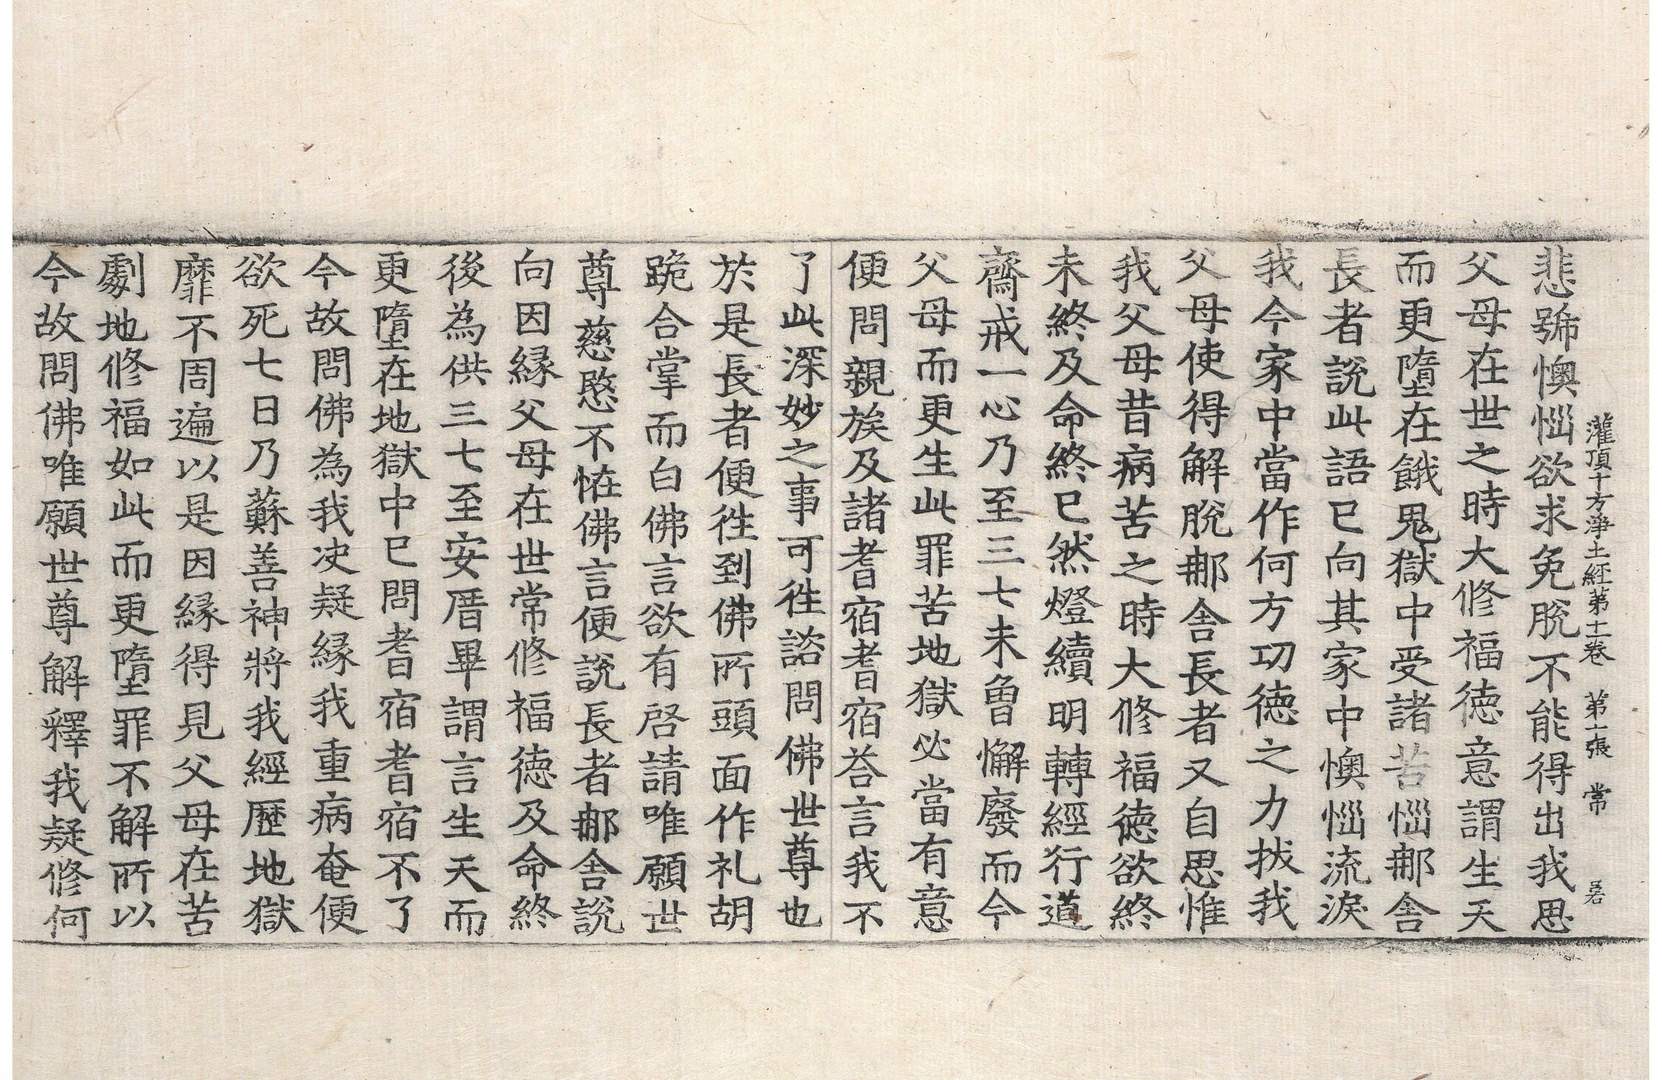 灌頂十方淨土經第十一卷　第十一張　常
悲號懊惱欲求免脫不能得出我思
父母在世之時大修福德意謂生天
而更墮在餓鬼獄中受諸苦惱那舍
長者說此語已向其家中懊惱流淚
我今家中當作何方功德之力拔我
父母使得解脫那舍長者又自思惟
我父母昔病苦之時大修福德欲終
未終及命終已然燈續明轉經行道
齋戒一心乃至三七未曾懈廢而今
父母而更生此罪苦地獄必當有意
便問親族及諸耆宿耆宿荅言我不
了此深妙之事可徃諮問佛世尊也
於是長者便徃到佛所頭面作礼胡
跪合掌而白佛言欲有啓請唯願世
尊慈愍不恠佛言便說長者那舍說
向因縁父母在世常修福德及命終
後為供三七至安厝畢謂言生天而
更墮在地獄中已問耆宿耆宿不了
今故問佛為我决疑縁我重病奄便
欲死七日乃蘇善神將我經歷地獄
靡不周遍以是因縁得見父母在苦
劇地修福如此而更墮罪不解所以
今故問佛唯願世尊解釋我疑修何